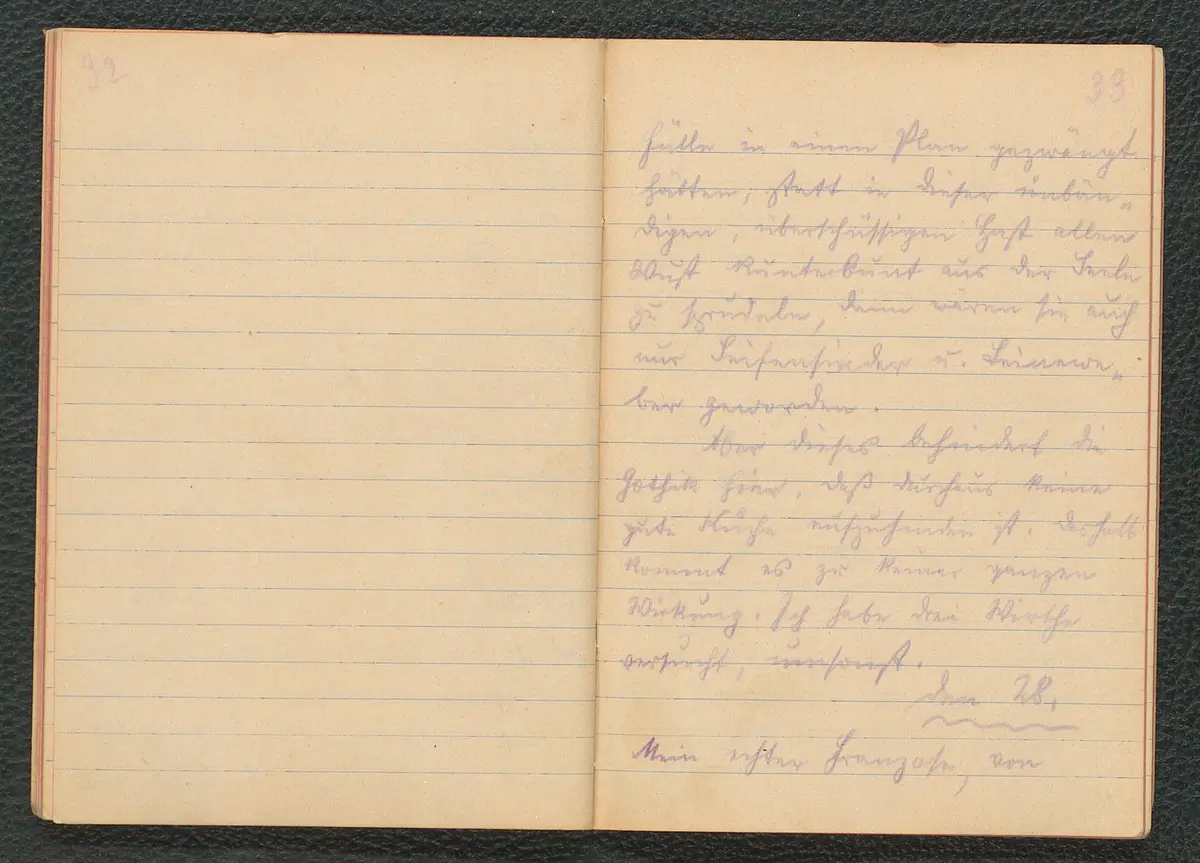 32
33
Fülle in einen Plan gezwängt
hätten, statt in dieser unbän„
digen, überschüssigen Hast allen
Wust kunterbunt aus der Seele
zu sprudeln, dann wären sie auch
nur Seifensieder u. Leinewe„
ber geworden.
Aber dieses behindert die
Gothik hier, daß durchaus keine
gute Küche aufzufinden ist. Deshalb
kommt es zu keiner ganzen
Wirkung. Ich habe drei Wirthe
versucht, umsonst.
Den 28.
Mein echter Franzose, von